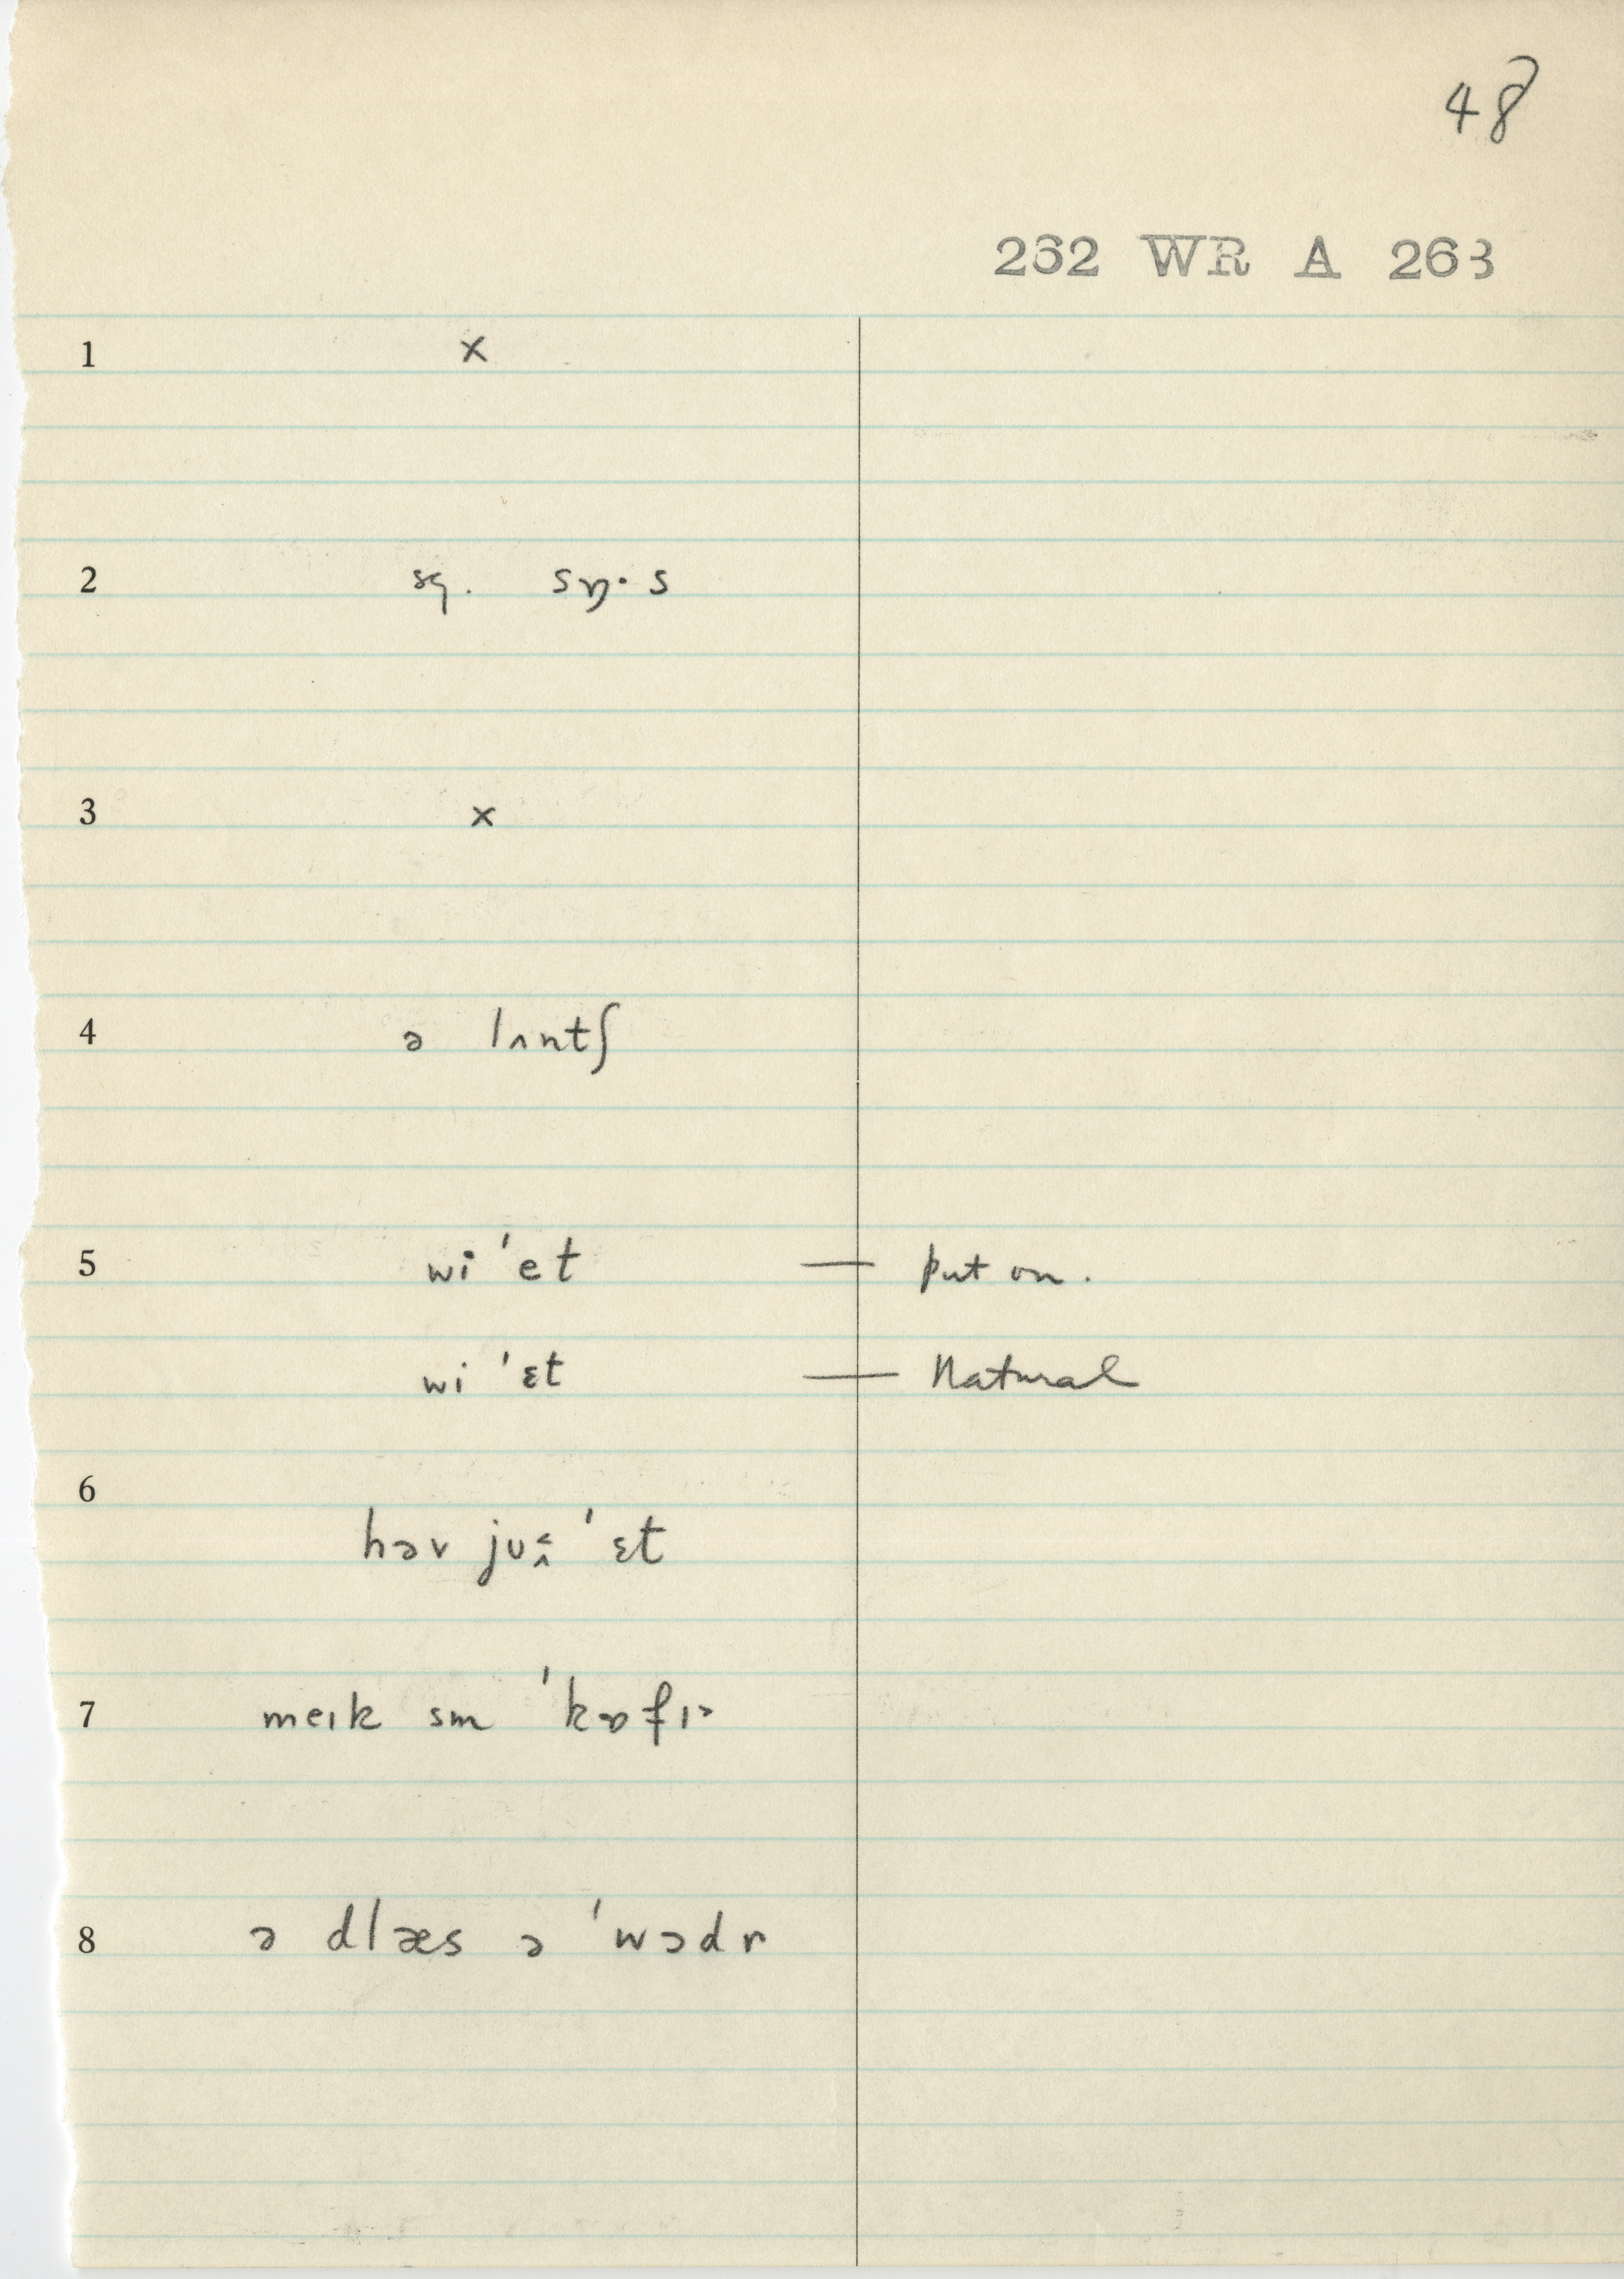 48
262 WR A 263
1 x
2 sq. sɒ̹· s
3 x
4 ə lʌntʃ
5 wi 'et — put on.
wi 'ɛt — Natural
6
həv ju 'ɛt
7 meɪk sm 'kɒfɪ
8 ə dlæs ə 'wɔdr